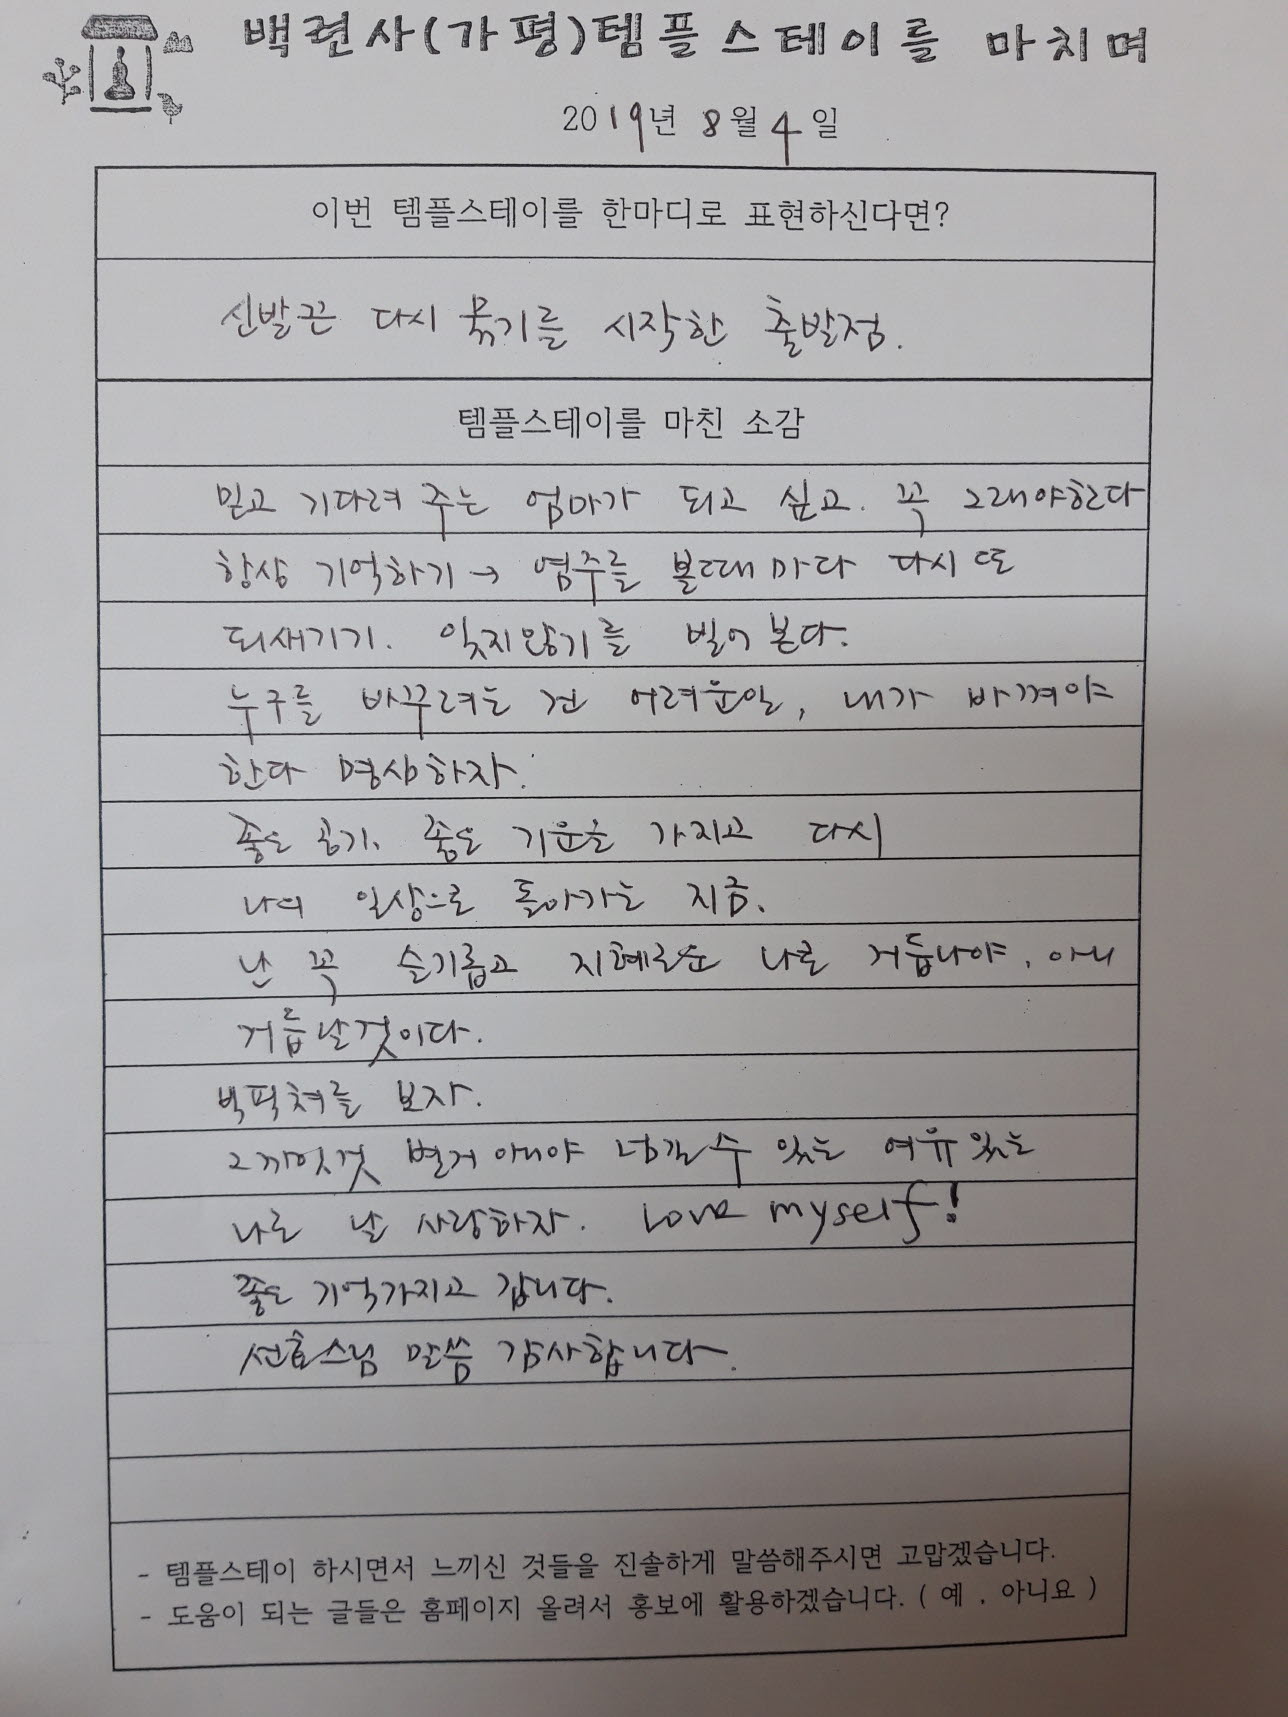 백련사(가평)템플스테이를 마치며
2019년 8월 4일
이번 템플스테이를 한마디로 표현하신다면?
신발끈 다시 묶기를 시작한 출발점.
템플스테이를 마친 소감
믿고 기다려 주는 엄마가 되고 싶고. 꼭 그래야한다
항상 기억하기 → 염주를 볼때마다 다시 또
되새기기. 잊지않기를 빌어 본다.
누구를 바꾸려는 건 어려운일, 내가 바껴야
한다 명심하자.
좋은 공기, 좋은 기운을 가지고 다시
나의 일상으로 돌아가는 지금.
난 꼭 슬기롭고 지혜로운 나로 거듭나야, 아니
거듭날것이다.
빅픽쳐를 보자.
그까잇것 별거 아니야 넘길수 있는 여유있는
나로 날 사랑하자. Love myself!
좋은 기억가지고 갑니다.
선효스님 말씀 감사합니다.
- 템플스테이 하시면서 느끼신 것들을 진솔하게 말씀해주시면 고맙겠습니다.
- 도움이 되는 글들은 홈페이지 올려서 홍보에 활용하겠습니다. ( 예 , 아니요 )